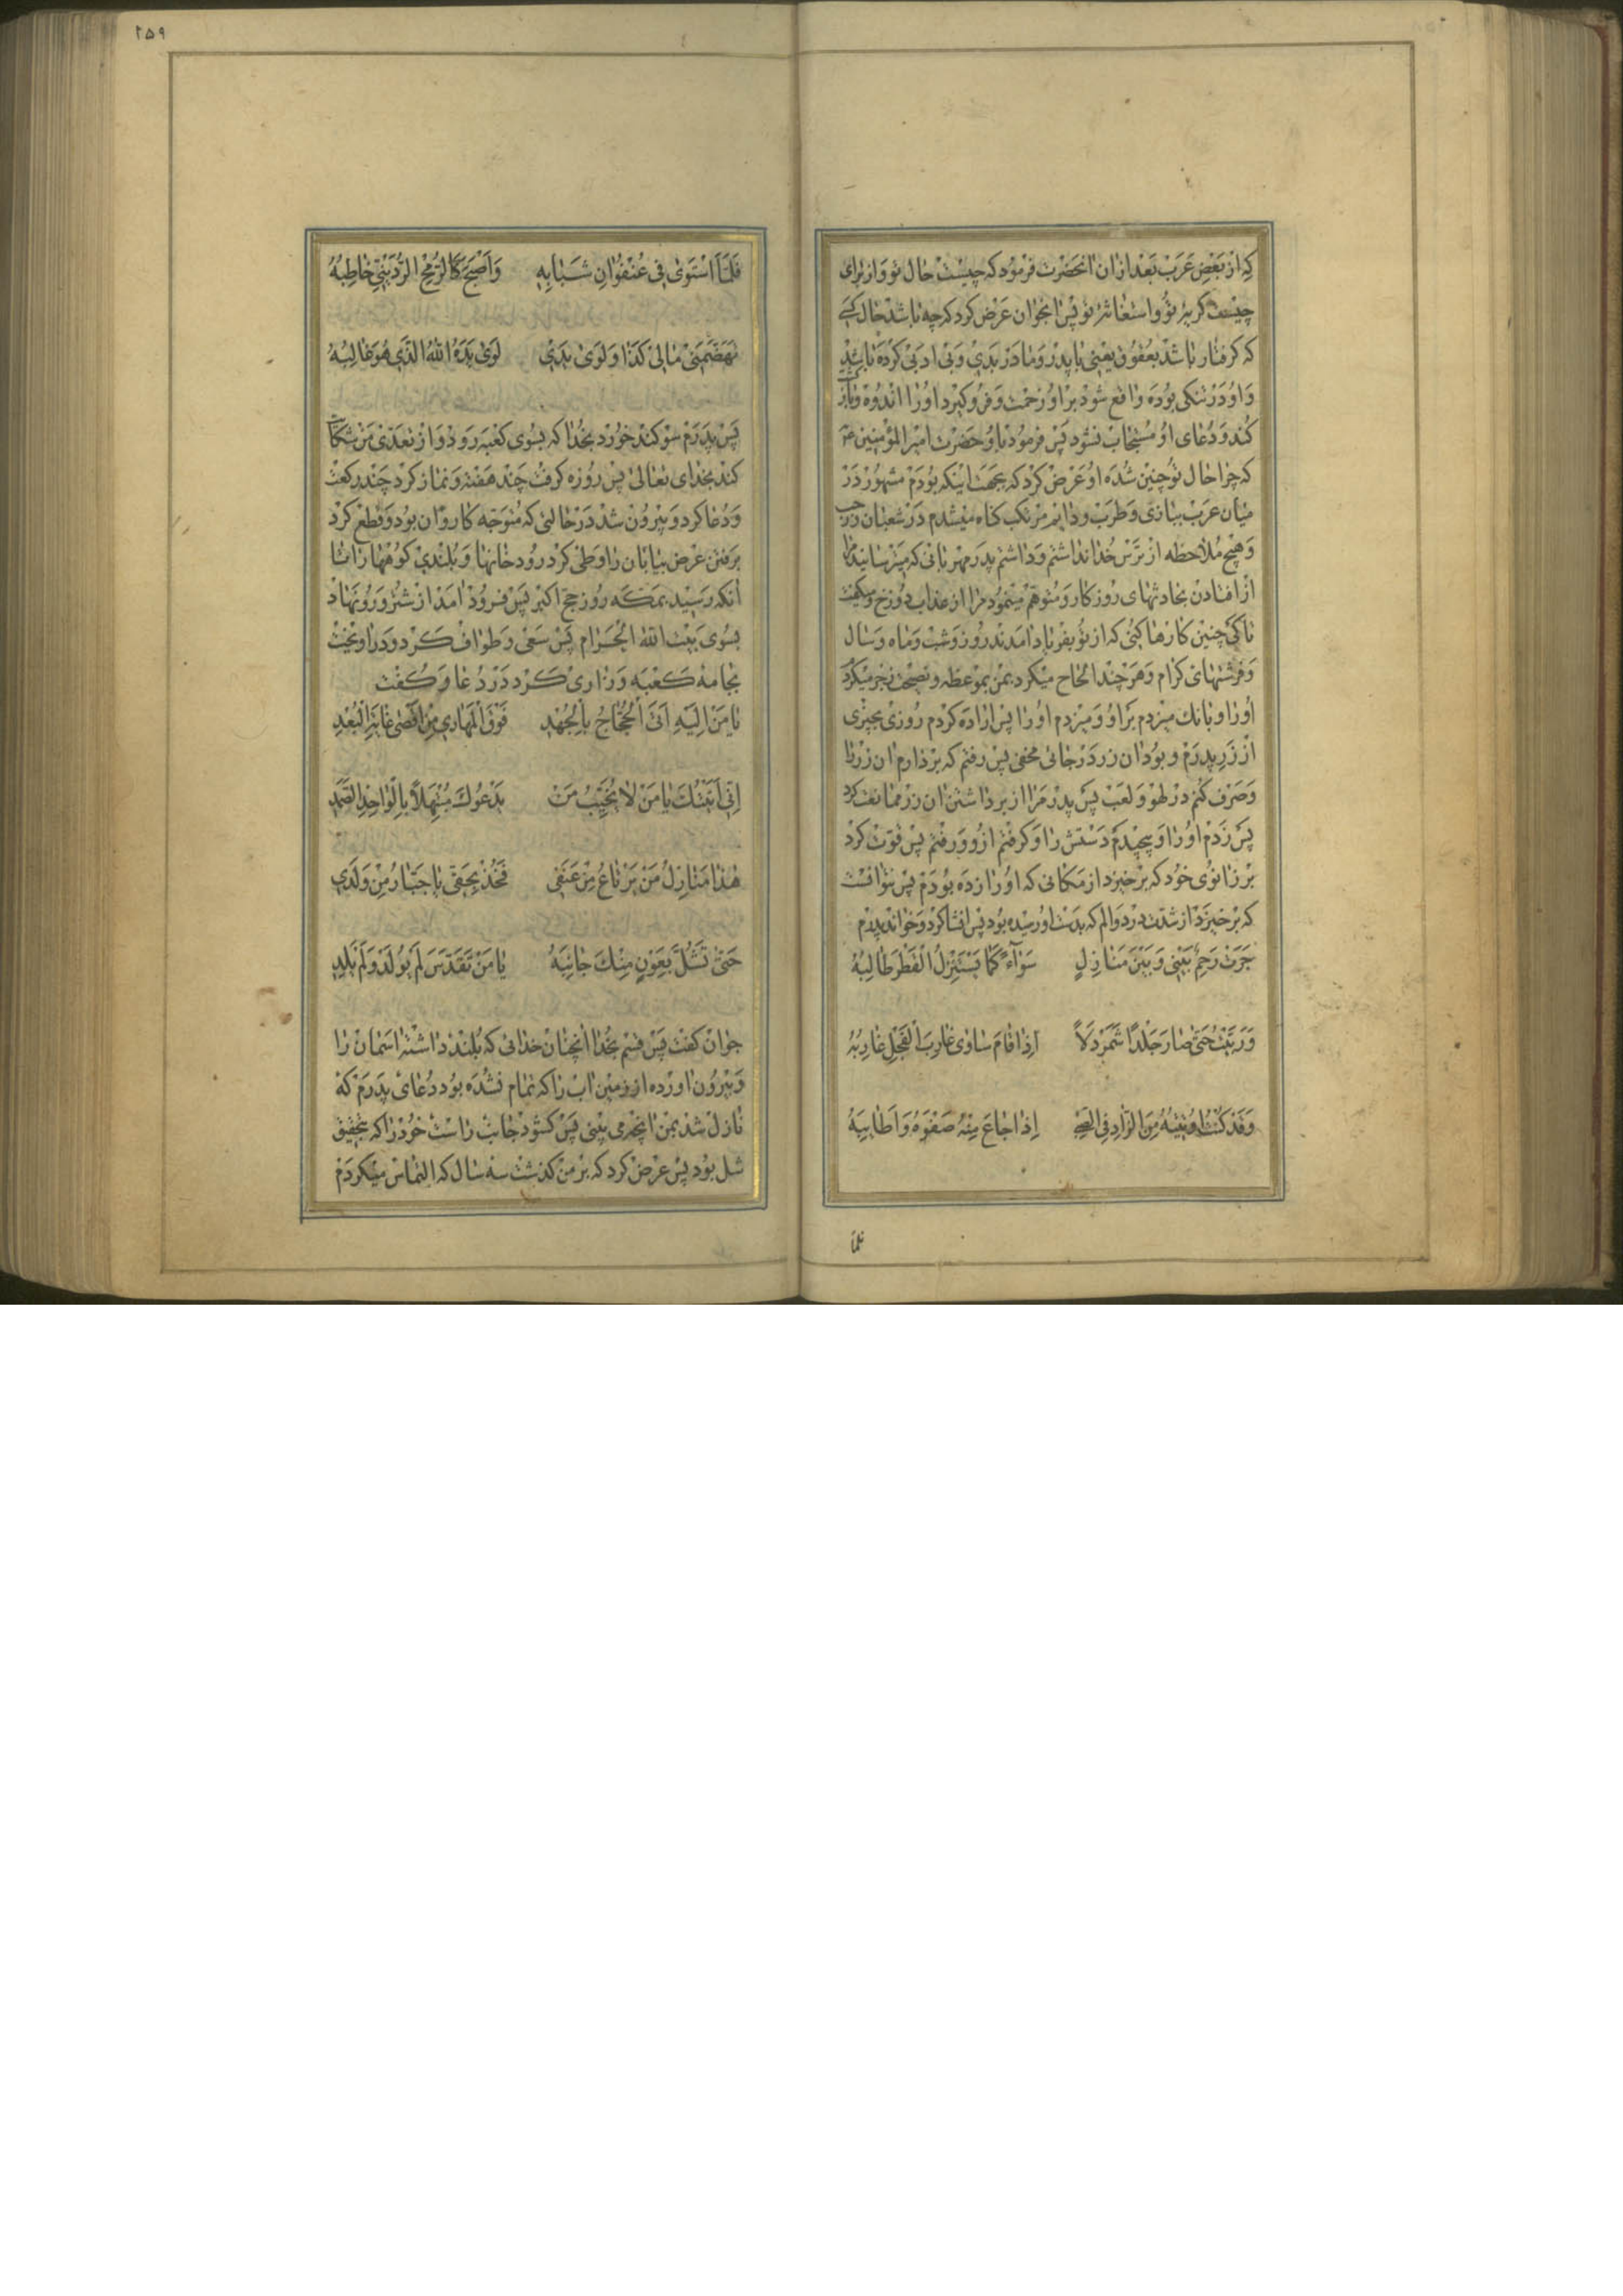 که از بعض عرب بعد از ان انحضرت فرمود که چیست حال تو و از برای
چیست کریه تو و استغاثه تو پس انجوان عرض کرد که چه باشد حال کسی
که کرفتار باشد بعقوق یعنی با پدر و مادر بدی و بی ادبی کرده باشد
و او در تنکی بوده واقع شود بر او زحمت و فرو کیرد او را اندوه و باز
کند و دعای او مستجاب نشود پس فرمود باو حضرت امیر المؤمنین ع
که چرا حال تو چنین شده او عرض کرد که بجهت اینکه بودم مشهور در
میان عرب ببازی و طرب و دایم مرتکب کناه میشدم در شعبان و رجب
و هیچ ملاحظه از ترس خدا نداشتم و داشتم پدر مهربانی که میترسانید مرا
از افتادن بحادثهای روزکار و متوهم مینمود مرا از عذاب دوزخ و میکفت
تا کی چنین کارها کنی که از تو بفریاد امدند روز و شب و ماه و سال
و فرشتهای کرام و هر چند الحاح میکرد بمن بموعظه و نصیحت زجر میکردم
او را و بانک میزدم بر او و میزدم او را پس اراده کردم روزی بچیزی
از زر پدرم و بود ان زر در جائی مخفی پس رفتم که بردارم ان زر را
و صرف کنم در لهو و لعب پس پدر مرا از برداشتن ان زر ممانعت کرد
پس زدم او را و پیچیدم دستش را و کرفتم از و و رفتم پس قوت کرد
بر زانوی خود که برخیزد از مکانی که او را زده بودم پس نتوانست
که برخیزد از شدت درد و الم که بدست او رسیده بود پس انشا کرد و خواند پدرم
جَرَتْ رَحِمٌ بَيْنِي وَبَيْنَ مَنَازِلٍ سَوَآءً كَمَا يَسْتَنْزِلُ الْقَطْرَ طَالِبُهُ
وَرَبَّيْتُ حَتّٰى صَارَ جَلْدًا شَمَرْدَلاً اِذَا قَامَ سَاوٰى غَارِبَ الْفَحْلِ غَارِبُهُ
وَقَدْ كُنْتُ اُوتِيهُ مِنَ الزَّادِ فِي الصِّبَى اِذَا جَاعَ مِنْهُ صَفْوَهُ وَاَطَايِبَهُ
فلما
۲۵۹
فَلَمَّا اسْتَوٰى فِي عُنْفُوَانِ شَبَابِهِ وَاَصْبَحَ كَالرُّمْحِ الرُّدَيْنِيِّ خَاطِبُهُ
تَهَضَّمَنِي مَالِي كَذَا وَلَوٰى يَدِي لَوٰى يَدَهُ اللّٰهُ الَّذِي هُوَ غَالِبُهُ
پس پدرم سوکند خورد بخدا که بسوی کعبه رود و از تعدی من شکایت
کند بخدای تعالی پس روزه کرفت چند هفته و نماز کرد چند رکعت
و دعا کرد و بیرون شد در حالتی که متوجه کاروان بود و قطع کرد
برفتن عرض بیابان را و طی کرد رودخانها و بلندی کوهها را تا
انکه رسید بمکه روز حج اکبر پس فرود امد از شتر و رو نهاد
بسوی بیت الله الحرام پس سعی و طواف کرد و در اویخت
بجامه کعبه و زاری کرد در دعا و کفت
يَا مَنْ اِلَيْهِ اَتَى الْحُجَّاجُ بِالْجُهْدِ فَوْقَ الْمَهَارِي مِنْ اَقْصٰى غَايَةِ الْبُعْدِ
اِنِّي اَتَيْتُكَ يَا مَنْ لَا يُخَيِّبُ مَنْ يَدْعُوكَ مُبْتَهِلاً بِالْوَاحِدِ الصَّمَدِ
هٰذَا مَنَازِلُ مَنْ يَرْتَاعُ مِنْ عَقَقِي فَخُذْ بِحَقِّي يَا جَبَّارُ مِنْ وَلَدِي
حَتّٰى تَشُلَّ بِعَوْنٍ مِنْكَ جَانِبَهُ يَا مَنْ تَقَدَّسَ لَمْ يُولَدْ وَلَمْ يَلِدِ
جوان کفت پس قسم بخدا انچنان خدائی که بلند داشته اسمان را
و بیرون اورده از زمین اب را که تمام نشده بود دعای پدرم که
نازل شد بمن انچه می بینی پس کشود جانب راست خود را که بتحقیق
شل بود پس عرض کرد که بر من کذشت سه سال که التماس میکردم